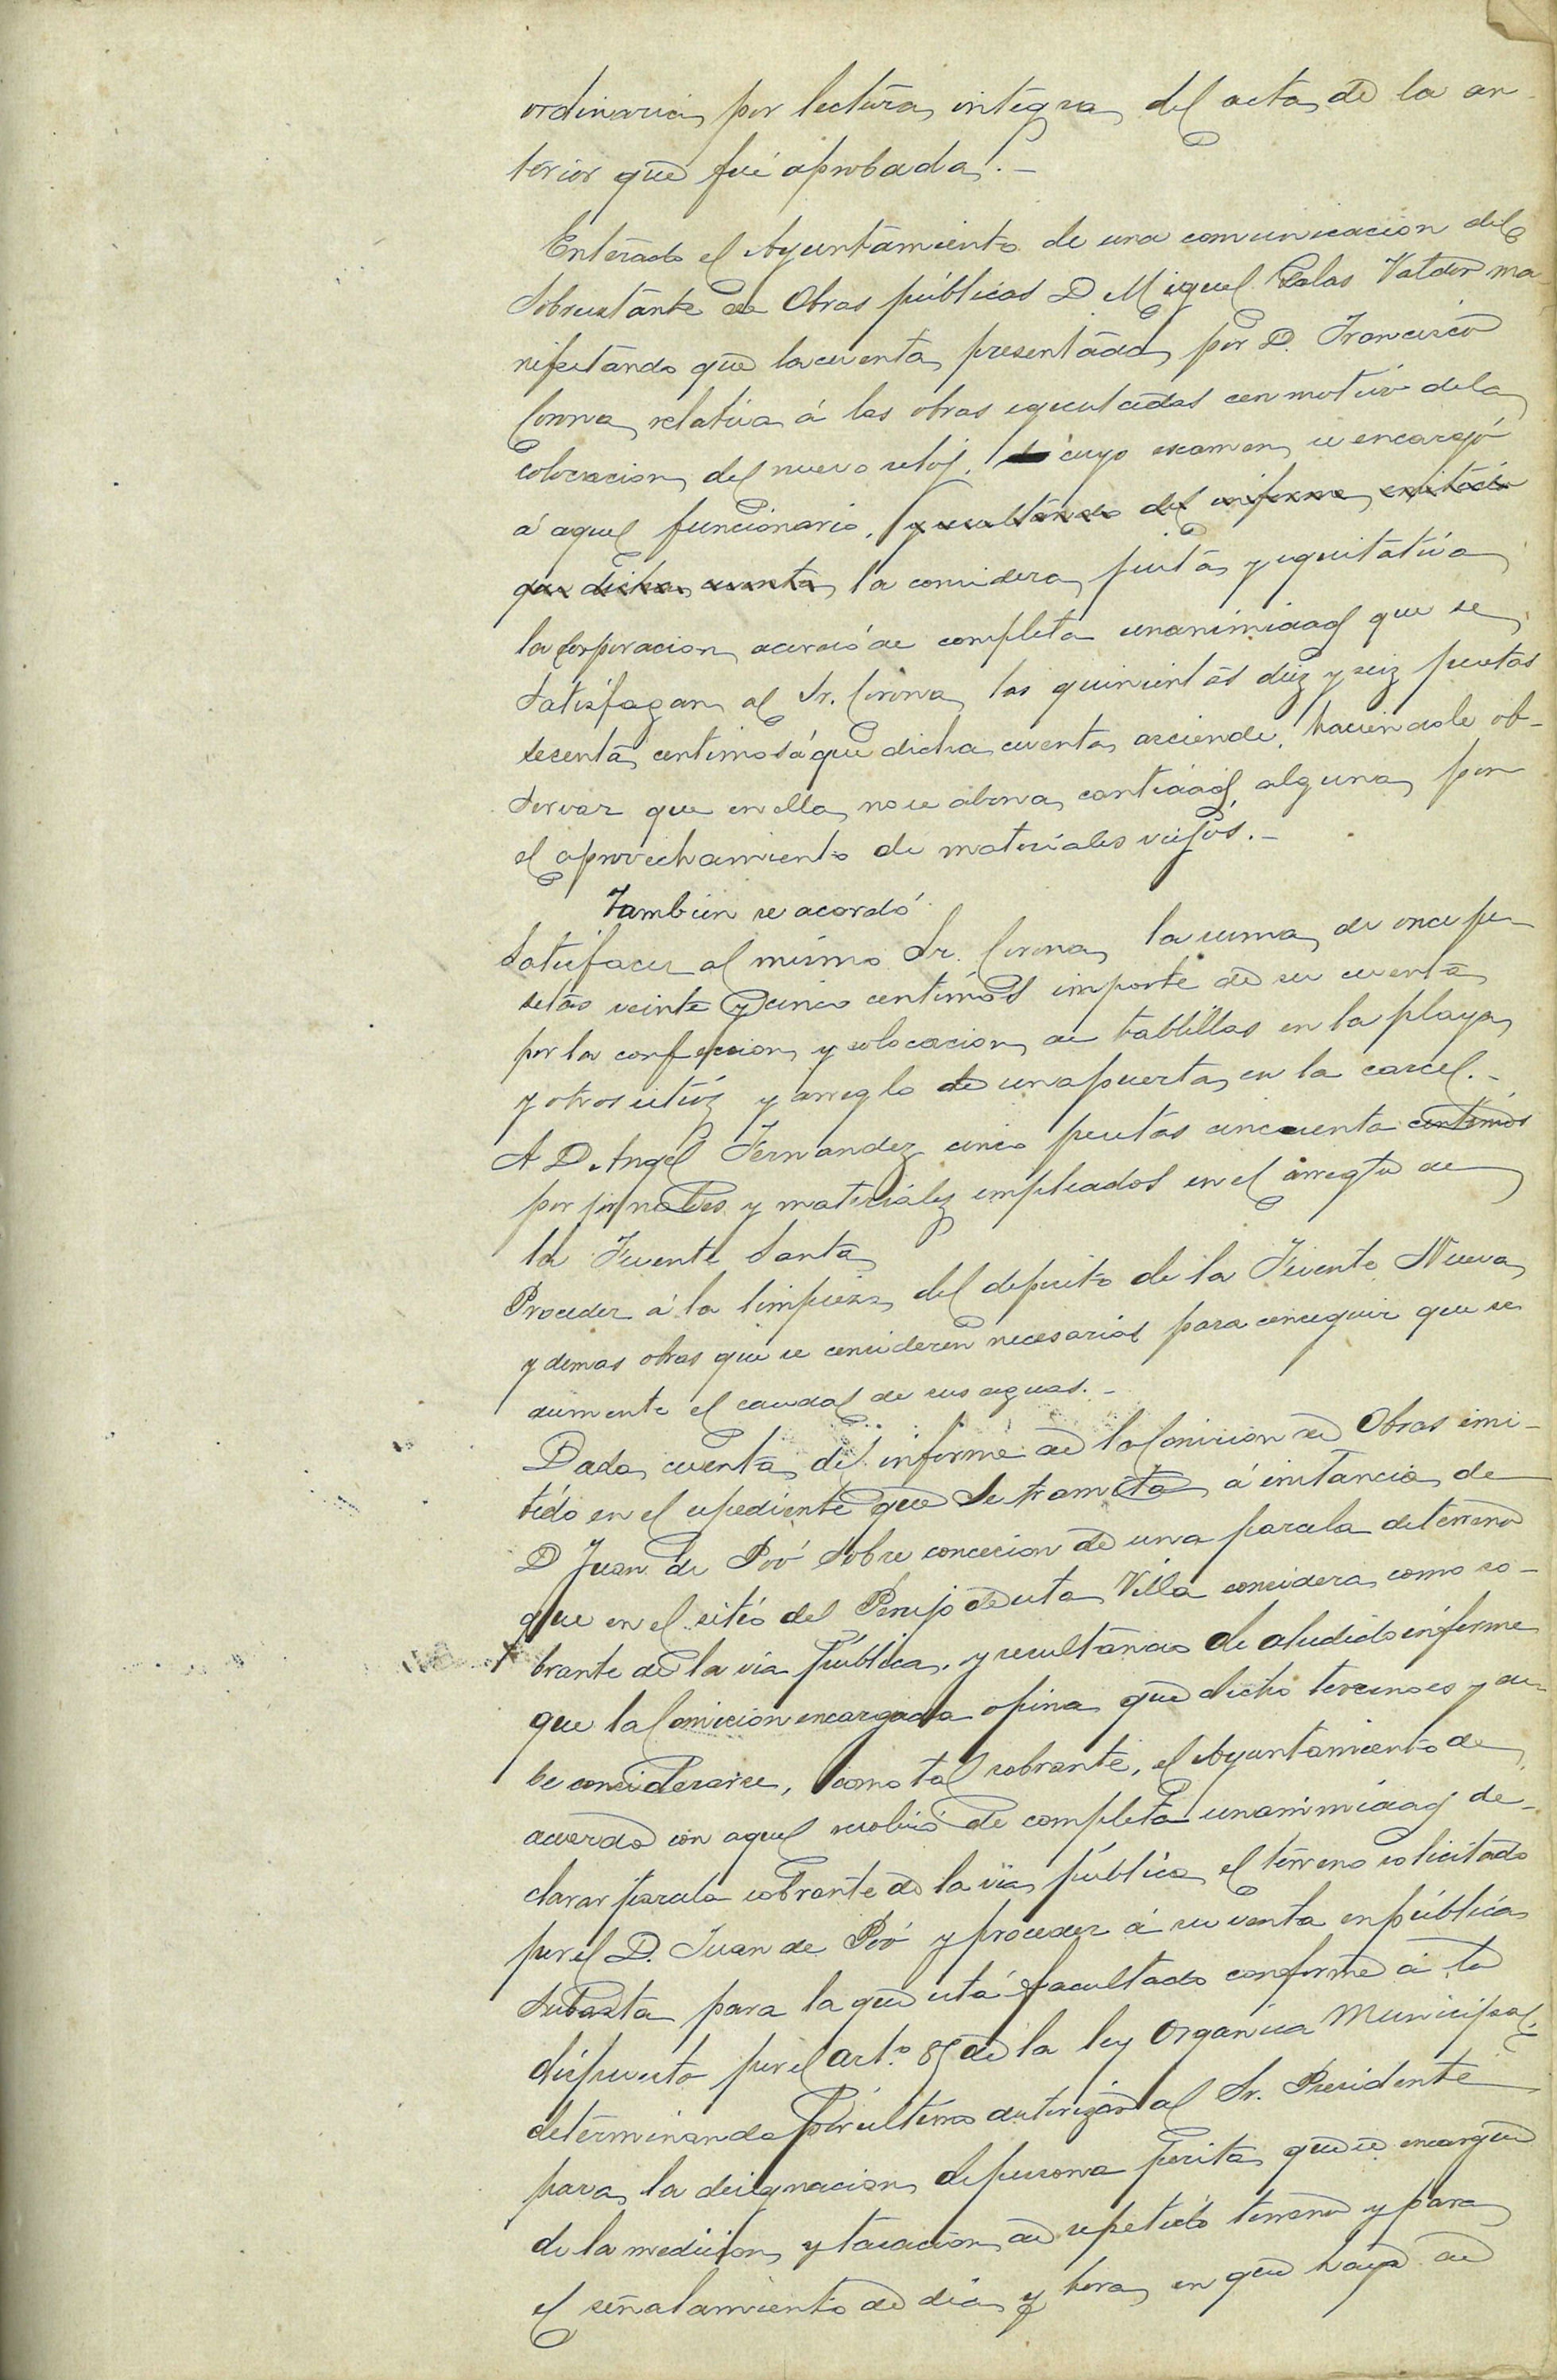 ordinaria por lectura integra del acta de la an-
terior que fué aprobada.-
Enterado el Ayuntamiento de una comunicacion del
Sobrestante de Obras públicas D. Miguel Salas Valdor ma-
nifestando que la cuenta presentada por D. Francisco
Corona relativa á las obras ejecutadas con motivo de la
colocacion del nuevo reloj, cuyo examen se encargó
á aquel funcionario, y resultando del informe emitido
que dicha cuenta la considera justa y equitativa
la Corporacion acordó de completa unanimidad que se
satisfagan al Sr. Corona las quinientas diez y seis pesetas
sesenta centimos á que dicha cuenta asciende, haciendole ob-
servar que en ella no se abona cantidad alguna por
el aprovechamiento de materiales viejos.-
Tambien se acordó
Satisfacer al mismo Sr. Corona la suma de once pe-
setas veinte y cinco centimos importe de su cuenta
por la confeccion y colocacion de tablillas en la playa
y otros sitios y arreglo de una puerta en la carcel.-
A D. Angel Fernandez cinco pesetas cincuenta centimos
por jornales y materiales empleados en el arreglo de
la Fuente Santa
Proceder á la limpieza del deposito de la Fuente Nueva
y demas obras que se consideren necesarias para conseguir que se
aumente el caudal de sus aguas.-
Dada cuenta del informe de la Comision de Obras emi-
tido en el espediente que se tramita á instancia de
D Juan de Poó sobre concesion de una parcela de terreno
que en el sitio del Perujo de esta Villa considera como so-
brante de la via pública, y resultando de aludido informe
que la Comision encargada opina que dicho terreno es y de-
be considerarse, como tal sobrante, el Ayuntamiento de
acuerdo con aquel resolvió de completa unanimidad de-
clarar parcela sobrante de la via pública el terreno solicitado
por el D. Juan de Poó y proceder á su venta en pública
subasta para la que está facultado conforme á lo
dispuesto por el art.º 85 de la ley Organica Municipal,
determinando por ultimo autorizar al Sr. Presidente
para la designacion de persona perita que se encargue
de la medicion y tasacion de repetido terreno y para
el señalamiento de dia y hora en que haya de